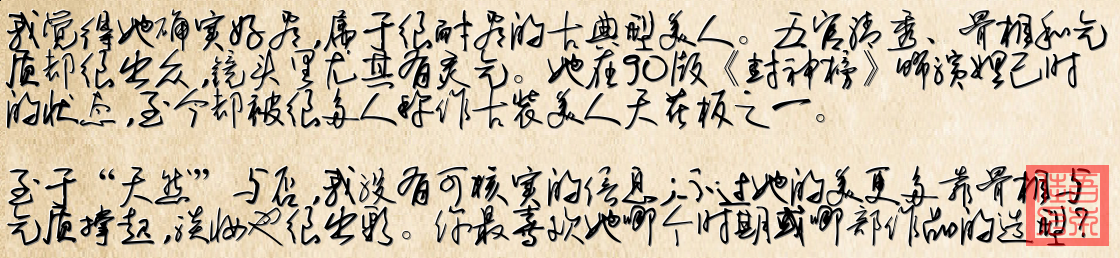 我觉得她确实好看，属于很耐看的古典型美人。五官清秀、骨相和气
质却很出众，镜头里尤其有灵气。她在90版《封神榜》饰演妲己时
的状态，至今却被很多人称作古装美人天花板之一。
至于“天然”与否，我没有可核实的信息；不过她的美更多靠骨相与
气质撑起，淡妆也很出彩。你最喜欢她哪个时期或哪部作品的造型？